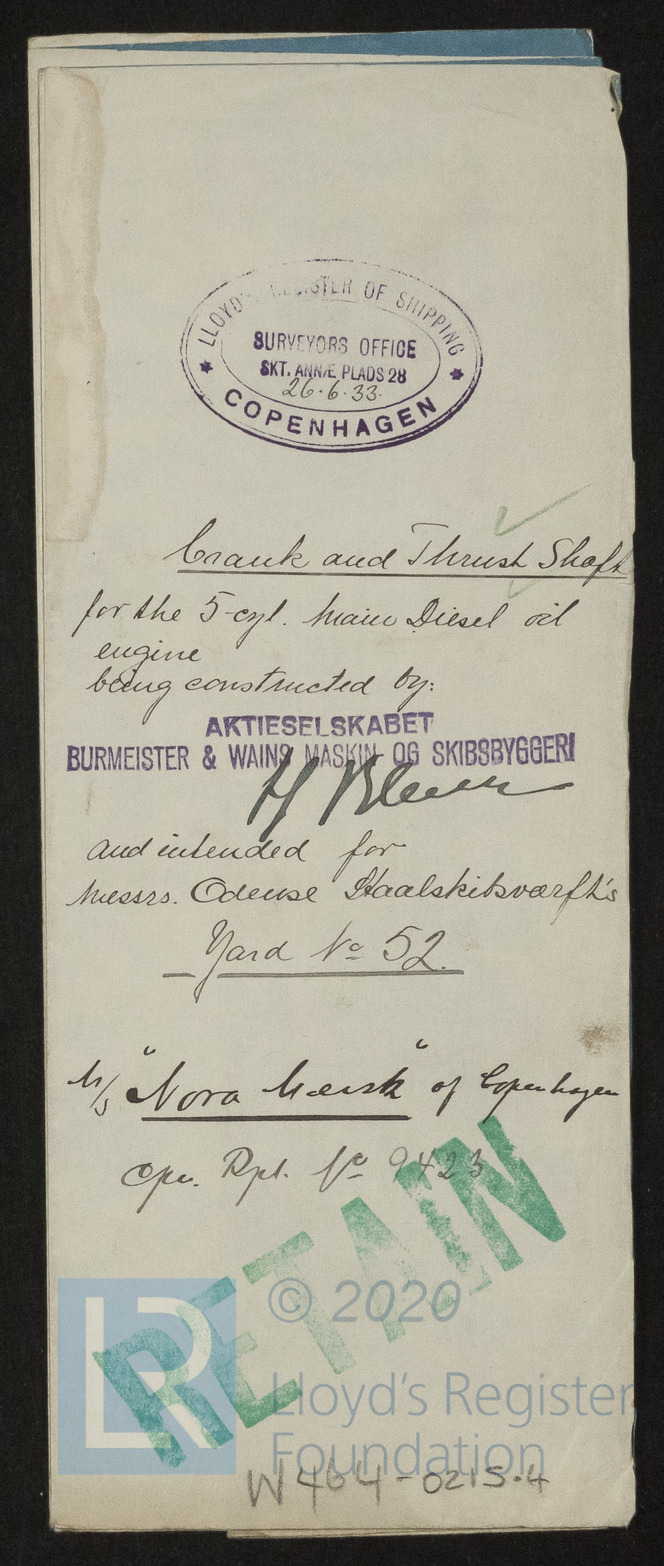 LLOYD'S REGISTER OF SHIPPING
SURVEYORS OFFICE
SKT. ANNÆ PLADS 28
26.6.33.
COPENHAGEN
Crank and Thrust Shaft
for the 5-cyl. Main Diesel oil
engine
being constructed by:
AKTIESELSKABET
BURMEISTER & WAINS MASKIN OG SKIBSBYGGERI
and intended for
Messrs. Odense Staalskibsværft's
Yard No 52.
M/S "Nora Mærsk" of Copenhagen
Cpn. Rpt. No 9423
RETAIN
LR
© 2020
Lloyd's Register
Foundation
W464-0215.4